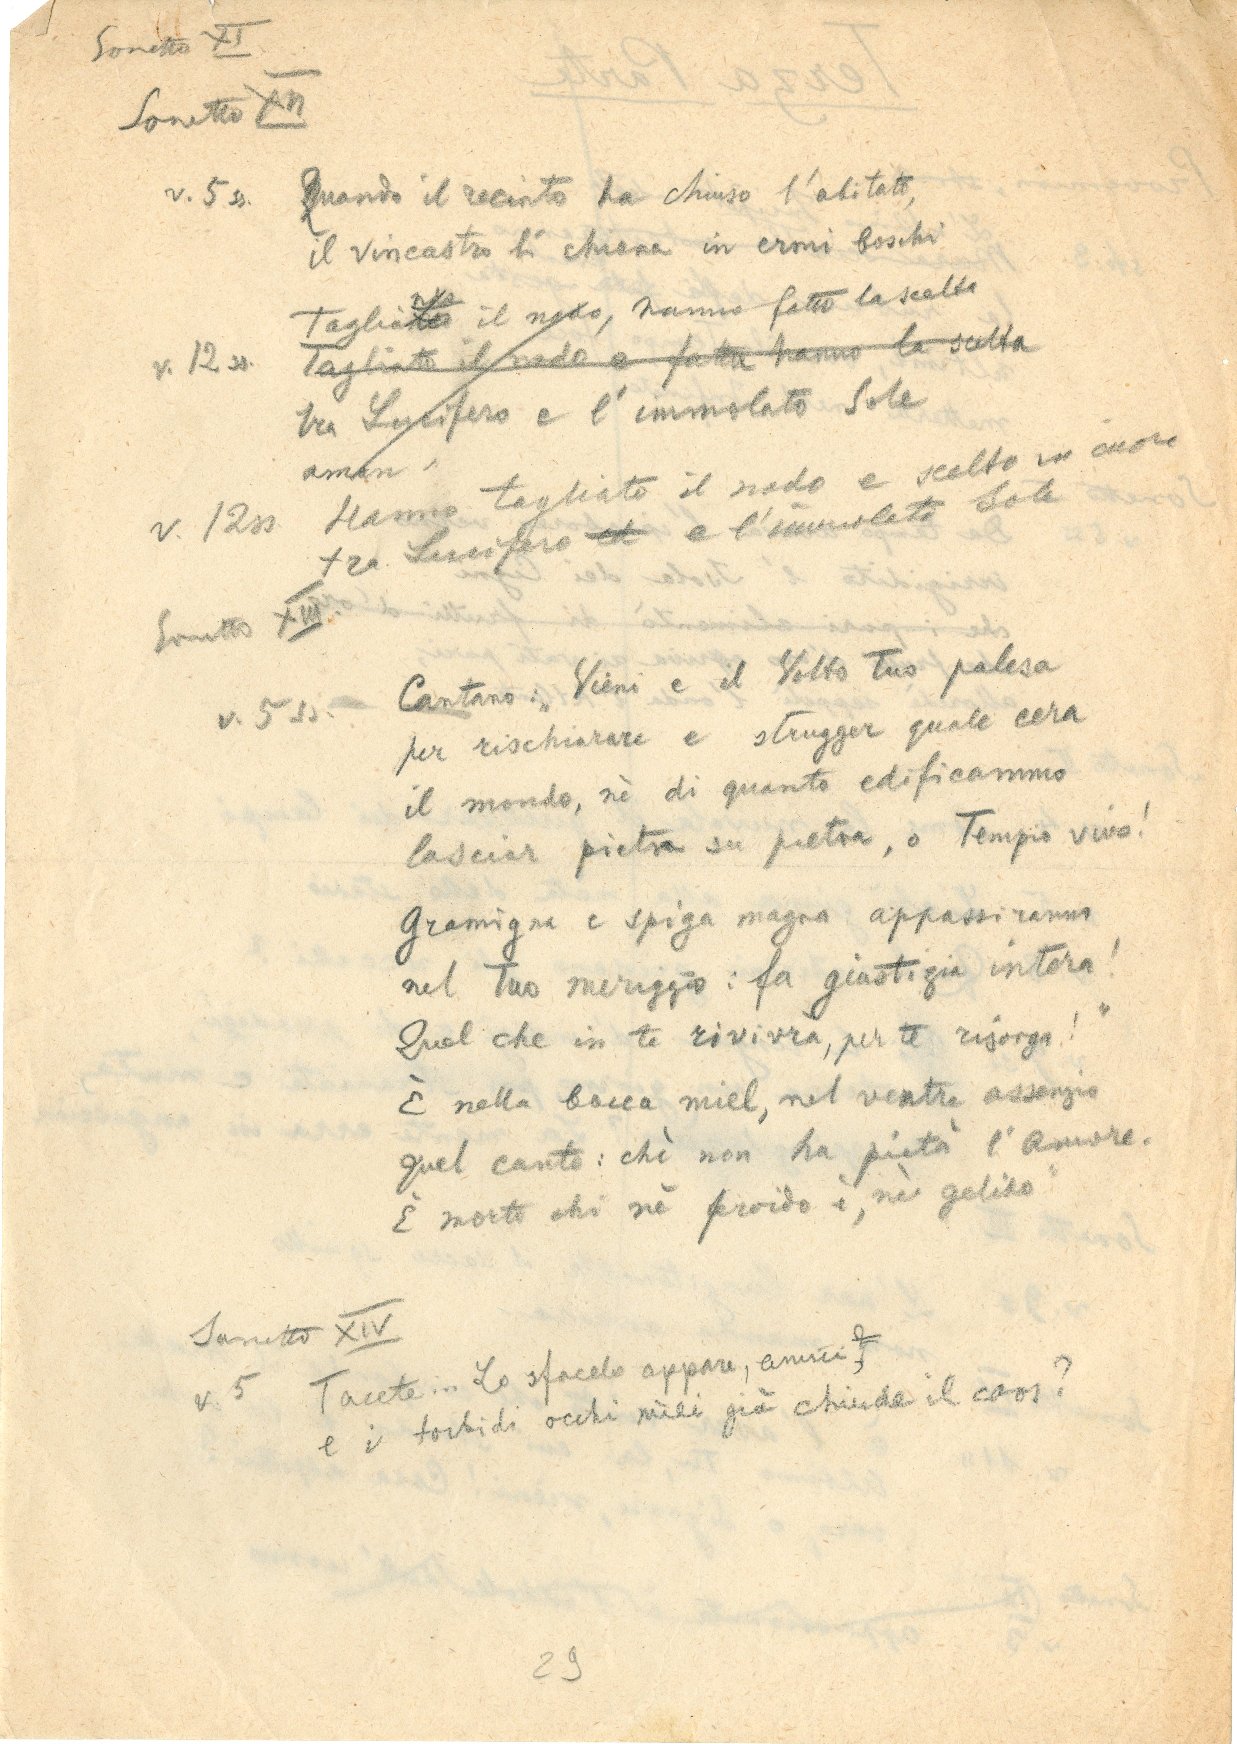 Sonetto XI
Sonetto XII
v. 5 ss. Quando il recinto ha chiuso l'abitato,
il vincastro li chiama in ermi boschi
Tagliato il nodo, hanno fatto la scelta
v. 12 ss. Tagliato il nodo e fatta hanno la scelta
tra Lucifero e l'immolato Sole
aman'
v. 12 ss Hanno tagliato il nodo e scelto in cuore
tra Lucifero e l'immolato Sole
Sonetto XIII.
v. 5 ss. Cantano: „Vieni e il Volto Tuo palesa
per rischiarare e strugger quale cera
il mondo, nè di quanto edificammo
lasciar pietra su pietra, o Tempio vivo!
Gramigna e spiga magna appassiranno
nel Tuo meriggio: fa giustizia intera!
Quel che in te rivivrà, per te risorga!"
È nella bocca miel, nel ventre assenzio
quel canto: chè non ha pietà l'Amore.
È morto chi nè fervido è, nè gelido
Sonetto XIV
v. 5 Tacete... Lo sfacelo appare, amici,
e i torbidi occhi miei già chiude il caos?
29